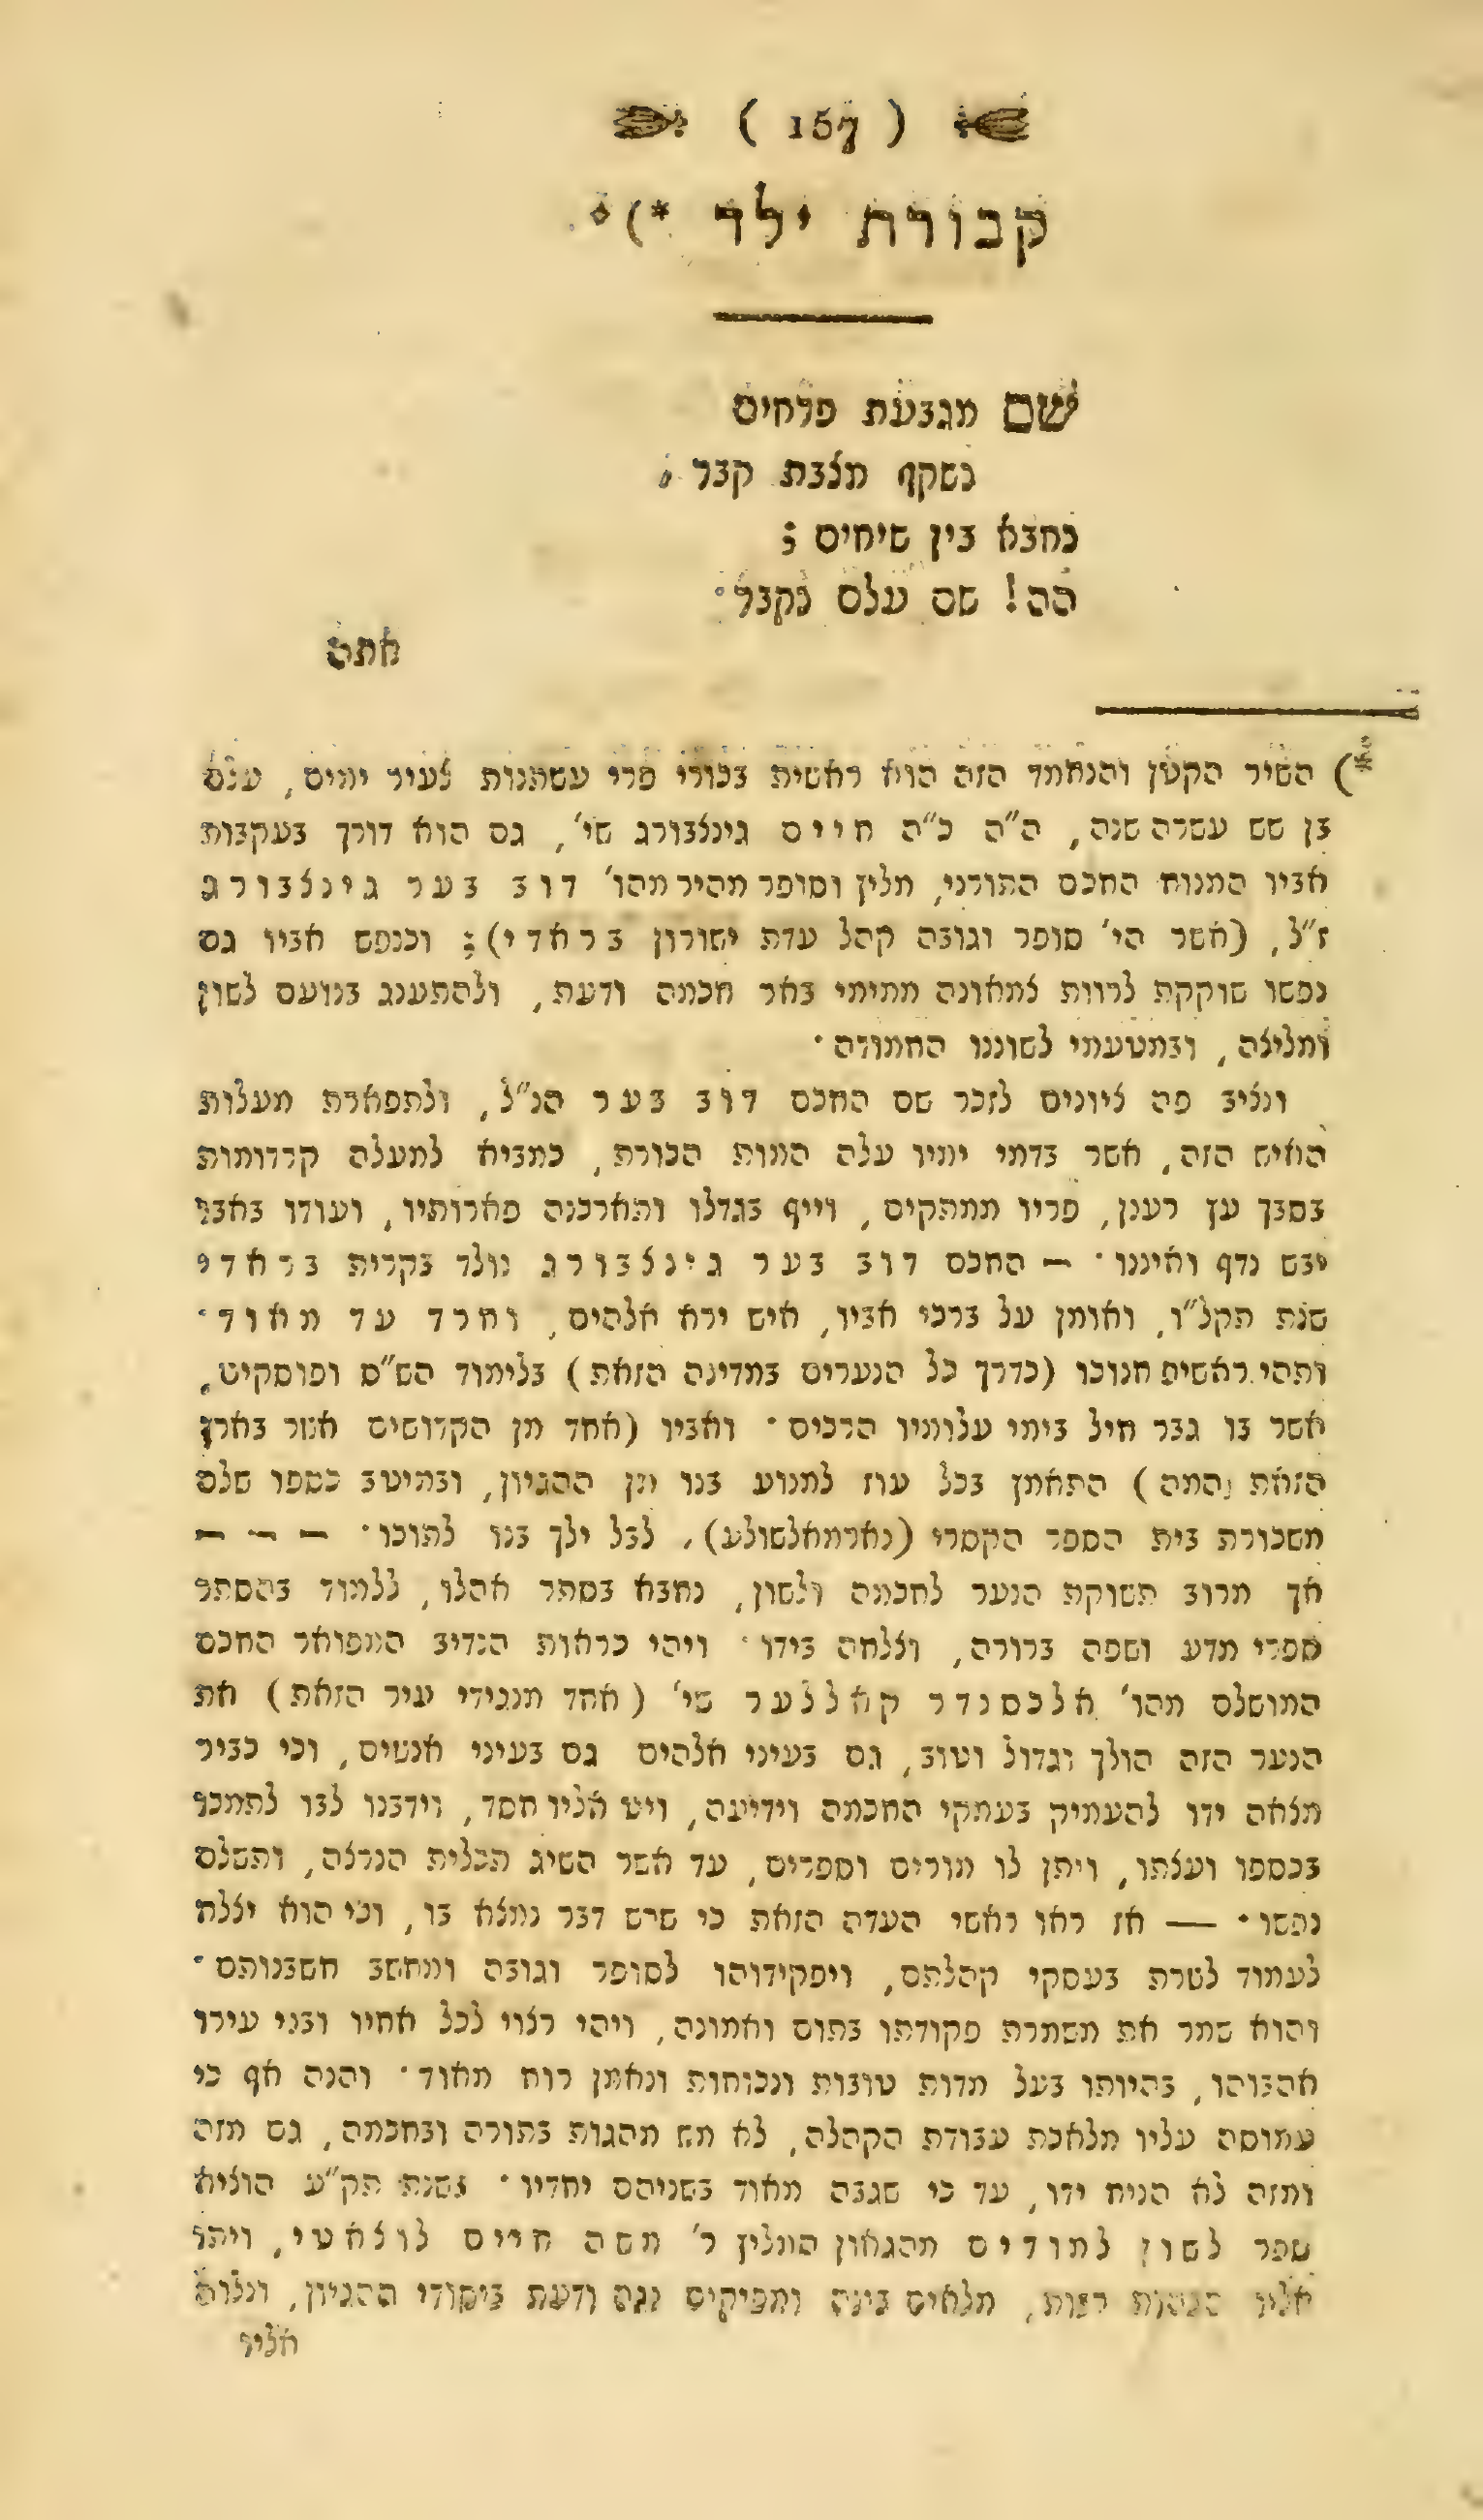 ( 157 )
קבורת ילד *).
שם מגבעת פרחים
נשקף מצבת קבר,
נחבא בין שיחים;
הה! שם עלם נקבר.
אתה
*) השיר הקטן והנחמד הזה הוא ראשית בכורי פרי עשתנות צעיר ימים, עלם
בן שש עשרה שנה, ה"ה כ"ה חיים גינצבורג שי', גם הוא דורך בעקבות
אביו המנוח החכם התורני, מליץ וסופר מהיר מהו' דוב בער גינצבורג
ז"ל, (אשר הי' סופר וגובה קהל עדת ישורון בראדי); וכנפש אביו גם
נפשו שוקקת לרוות צמאונה ממימי באר חכמה ודעת, ולהתענג בנועם לשון
ומליצה, ובמטעמי לשוננו החמודה.
ונציב פה ציונים לזכר שם החכם דוב בער הנ"ל, ולתפארת מעלות
האיש הזה, אשר בדמי ימיו עלה המות הכורת, כמביא למעלה קרדומות
בסבך עץ רענן, פריו ממתקים, וייף בגדלו ותארכנה פארותיו, ועודו באבו
יבש נדף ואיננו. — החכם דוב בער גינצבורג נולד בקרית בראדי
שנת תקל"ו, ואומן על ברכי אביו, איש ירא אלהים, וחרד עד מאוד.
ותהי ראשית חנוכו (כדרך כל הנערים במדינה הזאת) בלימוד הש"ס ופוסקים,
אשר בו גבר חיל בימי עלומיו הרכים. ואביו (אחד מן הקדושים אשר בארץ
הזאת המה) התאמץ בכל עוז למנוע בנו מן ההגיון, ובמיטב כספו שלם
משכורת בית הספר הקסרי (נארמאלשולע), לבל ילך בנו לתוכו. — — —
אך מרוב תשוקת הנער לחכמה ולשון, נחבא בסתר אהלו, ללמוד בהסתר
ספרי מדע ושפה ברורה, וצלחה בידו. ויהי כראות הנדיב המפואר החכם
המושלם מהו' אלכסנדר קאללער שי' (אחד מנגידי עיר הזאת) את
הנער הזה הולך וגדול וטוב, גם בעיני אלהים גם בעיני אנשים, וכי כביר
מצאה ידו להעמיק בעמקי החכמה וידיעה, ויט אליו חסד, וידבנו לבו לתמכו
בכספו ועצתו, ויתן לו מורים וספרים, עד אשר השיג תכלית הנרצה, ותשלם
נפשו. — אז ראו ראשי העדה הזאת כי שרש דבר נמצא בו, וכי הוא יצלח
לעמוד לשרת בעסקי קהלתם, ויפקידוהו לסופר וגובה ומחשב חשבנותם.
והוא שמר את משמרת פקודתו בתום ואמונה, ויהי רצוי לכל אחיו ובני עירו
אהבוהו, בהיותו בעל מדות טובות ונכוחות ונאמן רוח מאוד. והנה אף כי
עמוסה עליו מלאכת עבודת הקהלה, לא מש מהגות בתורה ובחכמה, גם מזה
ומזה לא הניח ידו, עד כי שגבה מאוד בשניהם יחדיו. בשנת תק"ע הוציא
ספר לשון למודים מהגאון המליץ ר' משה חיים לוצאטי, ויתן
אליו רבות, מלאים בינה ומפיקים נגה ודעת ביסודי ההגיון, ונלוה
אליו